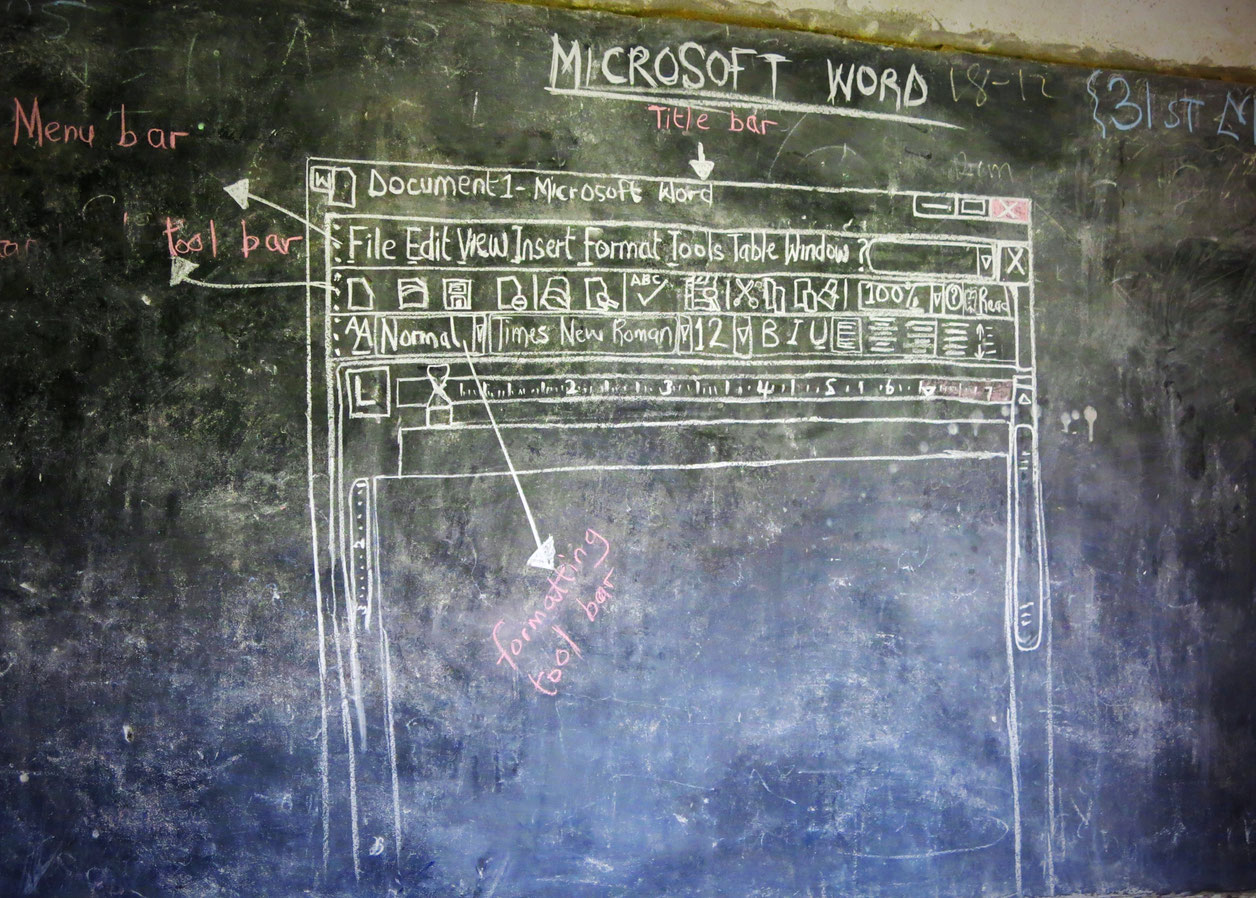 MICROSOFT WORD 18-12
{31ST
Title bar
Menu bar
tool bar
W Document1 - Microsoft Word X
File Edit View Insert Format Tools Table Window ? X
ABC 100% ? Read
AA Normal Times New Roman 12 B I U
L 2 3 4 5 6 7
2
3
formatting
tool bar